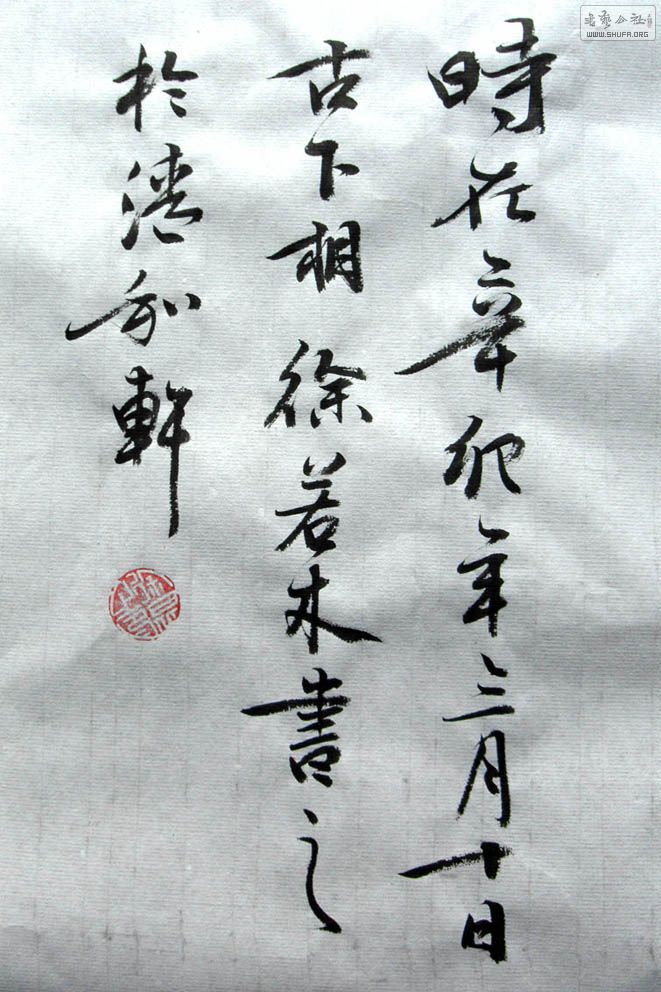 時在辛卯年三月十日
古下相徐若木書之
於清和軒
書藝公社
WWW.SHUFA.ORG